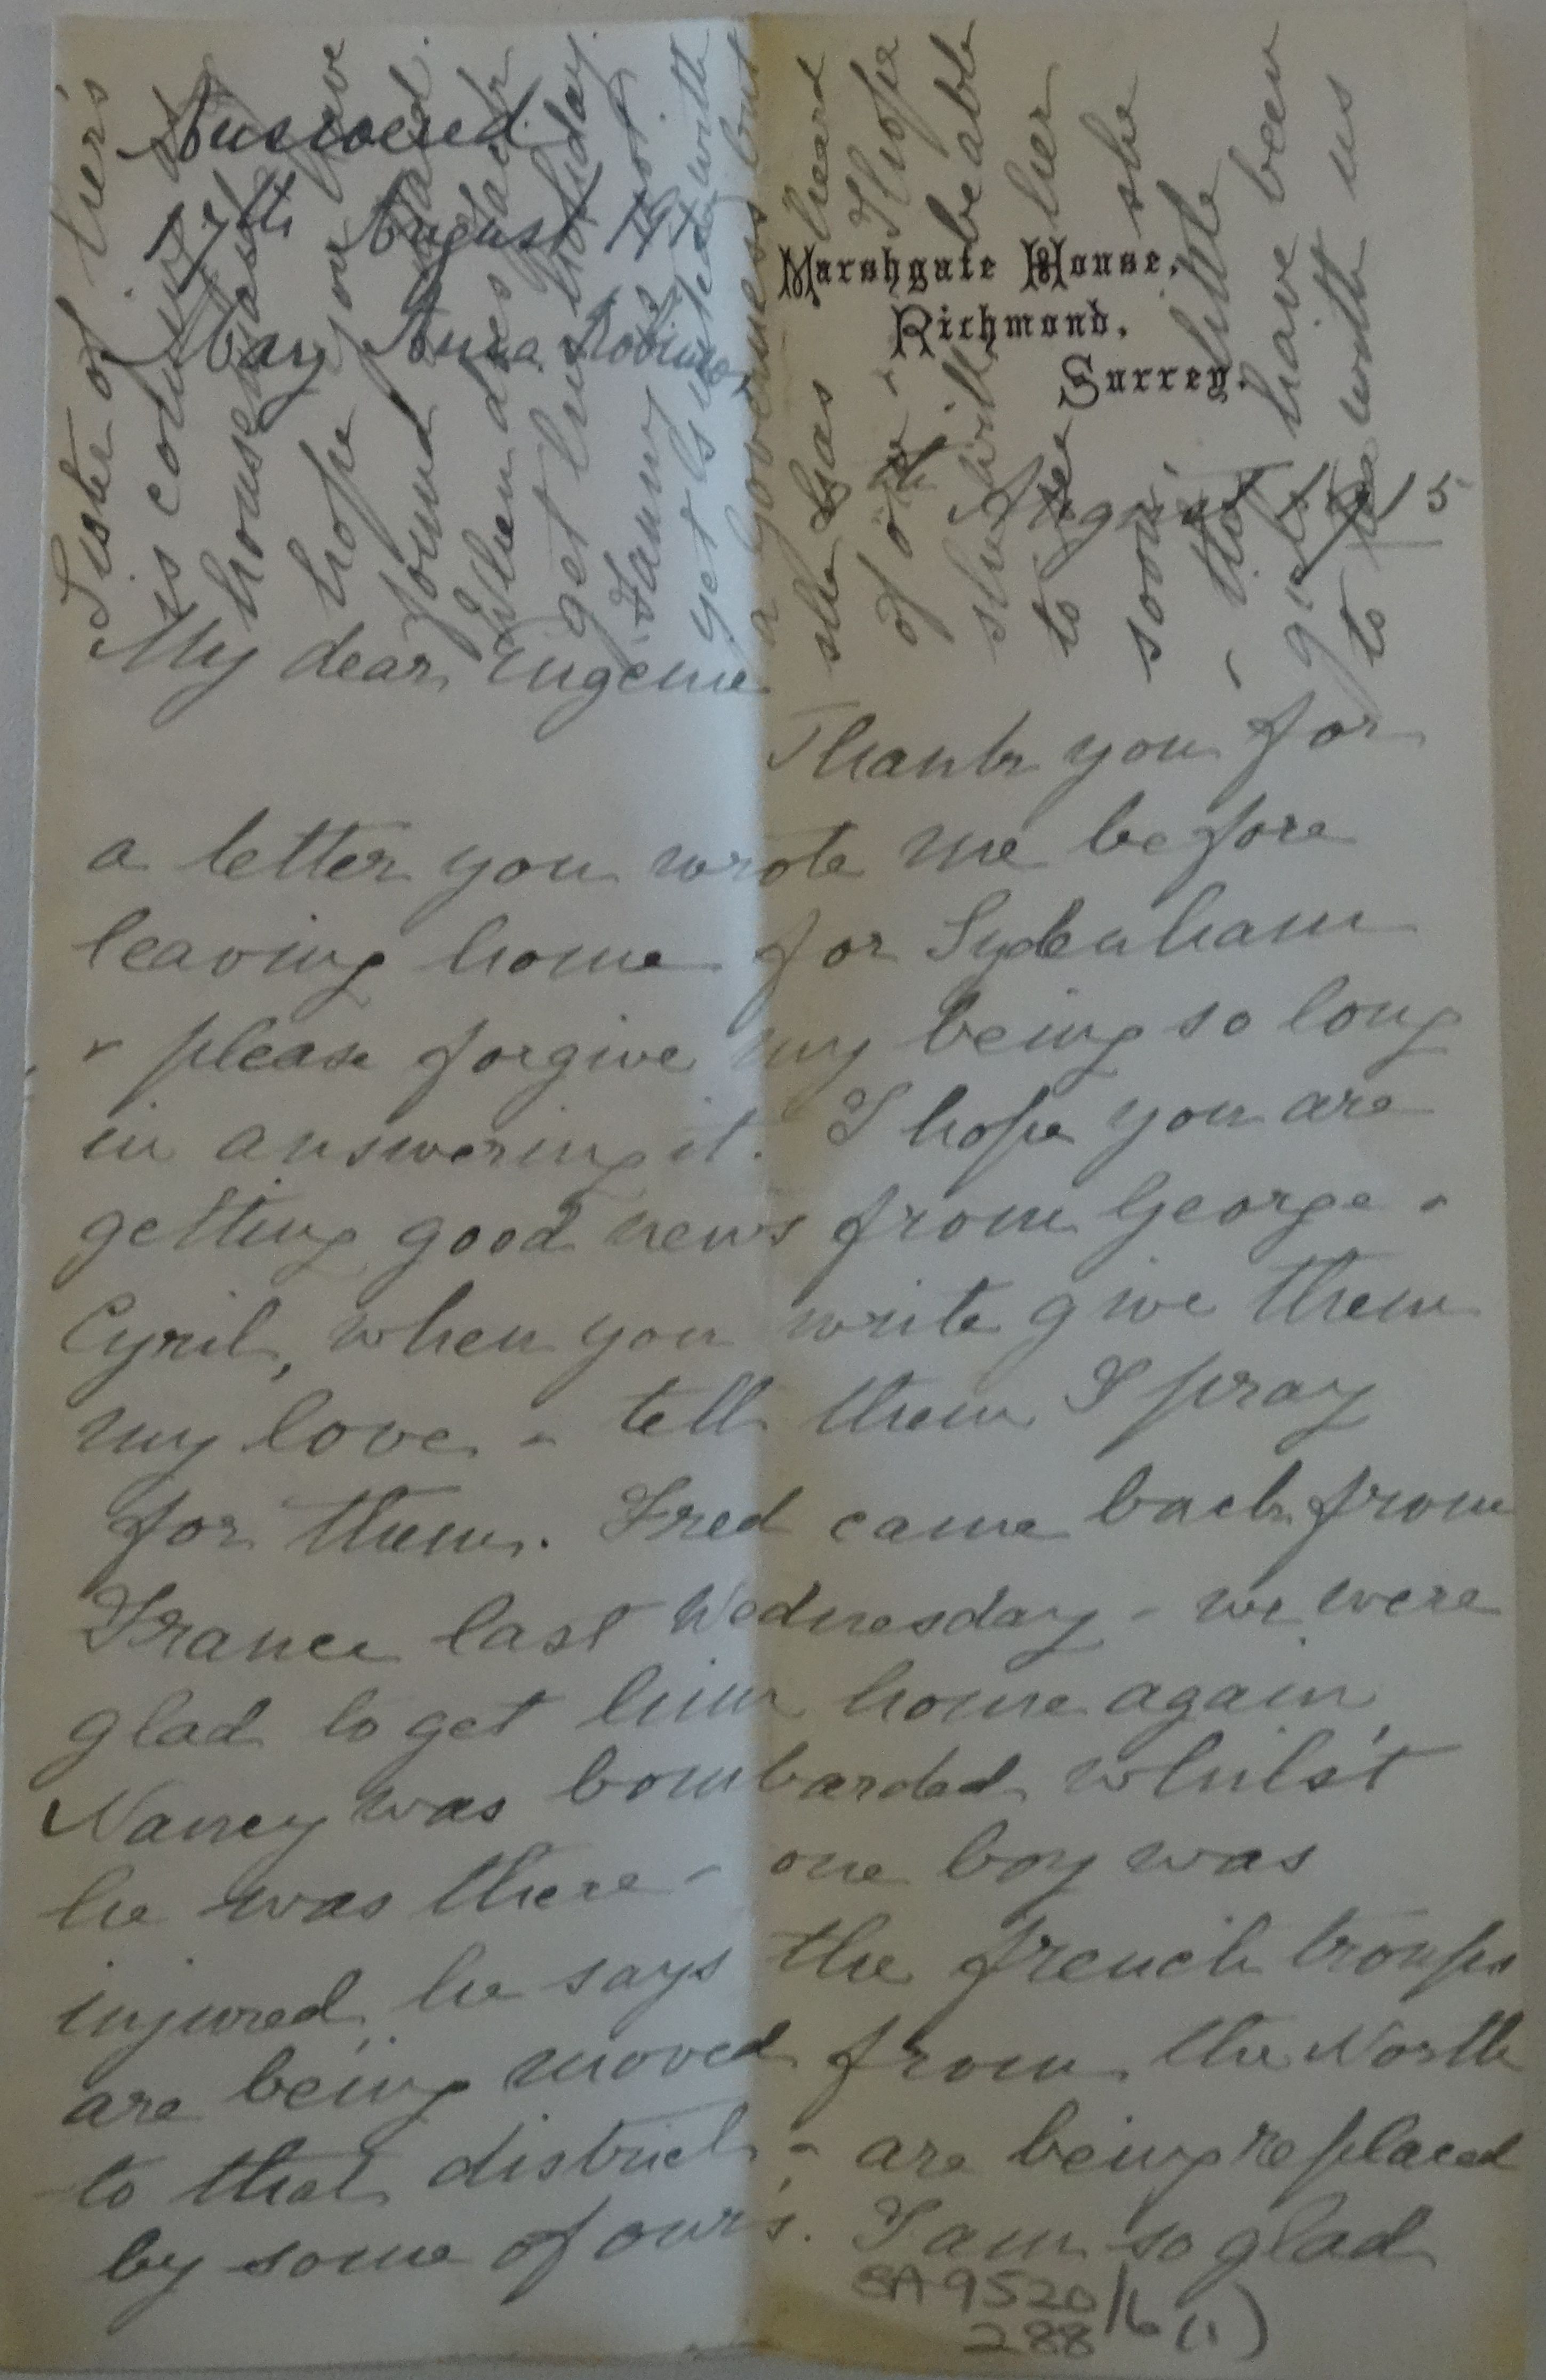 Answered
17th August 1915
Mary Anna Robinson
Marshgate House,
Richmond,
Surrey.
th August 1915
My dear Eugenie
Thank you for
a letter you wrote me before
leaving home for Sydenham
& please forgive my being so long
in answering it. I hope you are
getting good news from George &
Cyril, when you write give them
my love & tell them I pray
for them. Fred came back from
France last Wednesday & we were
glad to get him home again,
Nancy was bombarded whilst
he was there & one boy was
injured, he says the french troops
are being moved from the North
to that district & are being replaced
by some of our's. I am so glad
BA 9520/6(1)
288
Sister of her's
is coming
house
hope you have
found
Ellen does
get her holiday.
Fanny
yet
a governess but
she has heard
of one & I hope
she will be able
to see her
soon, she
& the little
girls have been
to tea with us